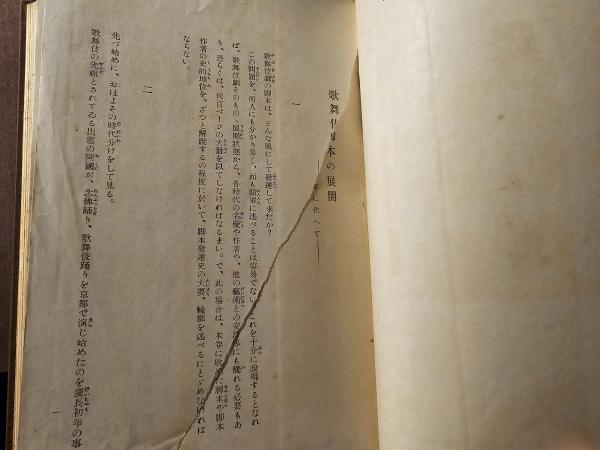 歌舞伎脚本の展開
に代へて
一
歌舞伎劇の脚本は、どんな風にして發達して來たか？
この問題を、何人にも分かり易く、而も簡單に述べることは容易でない。これを十分に説明するとなれ
ば、歌舞伎劇そのものゝ展開状態から、各時代の名優や作者や、他の藝術との交渉等にも觸れる必要もあ
り、恐らくは、何百ページの大册を以てしなければなるまい。で、此の場合は、本卷に收めた脚本や脚本
作者の史的地位を、ざつと解説するの程度に於いて、脚本發達史の大要、輪廓を述べるにとゞめなければ
ならない。
二
先づ始めに、おほよその時代分けをして見る。
歌舞伎の先祖とされてゐる出雲の阿國が、念佛踊り、歌舞伎踊りを京都で演じ始めたのを慶長初年の事
一